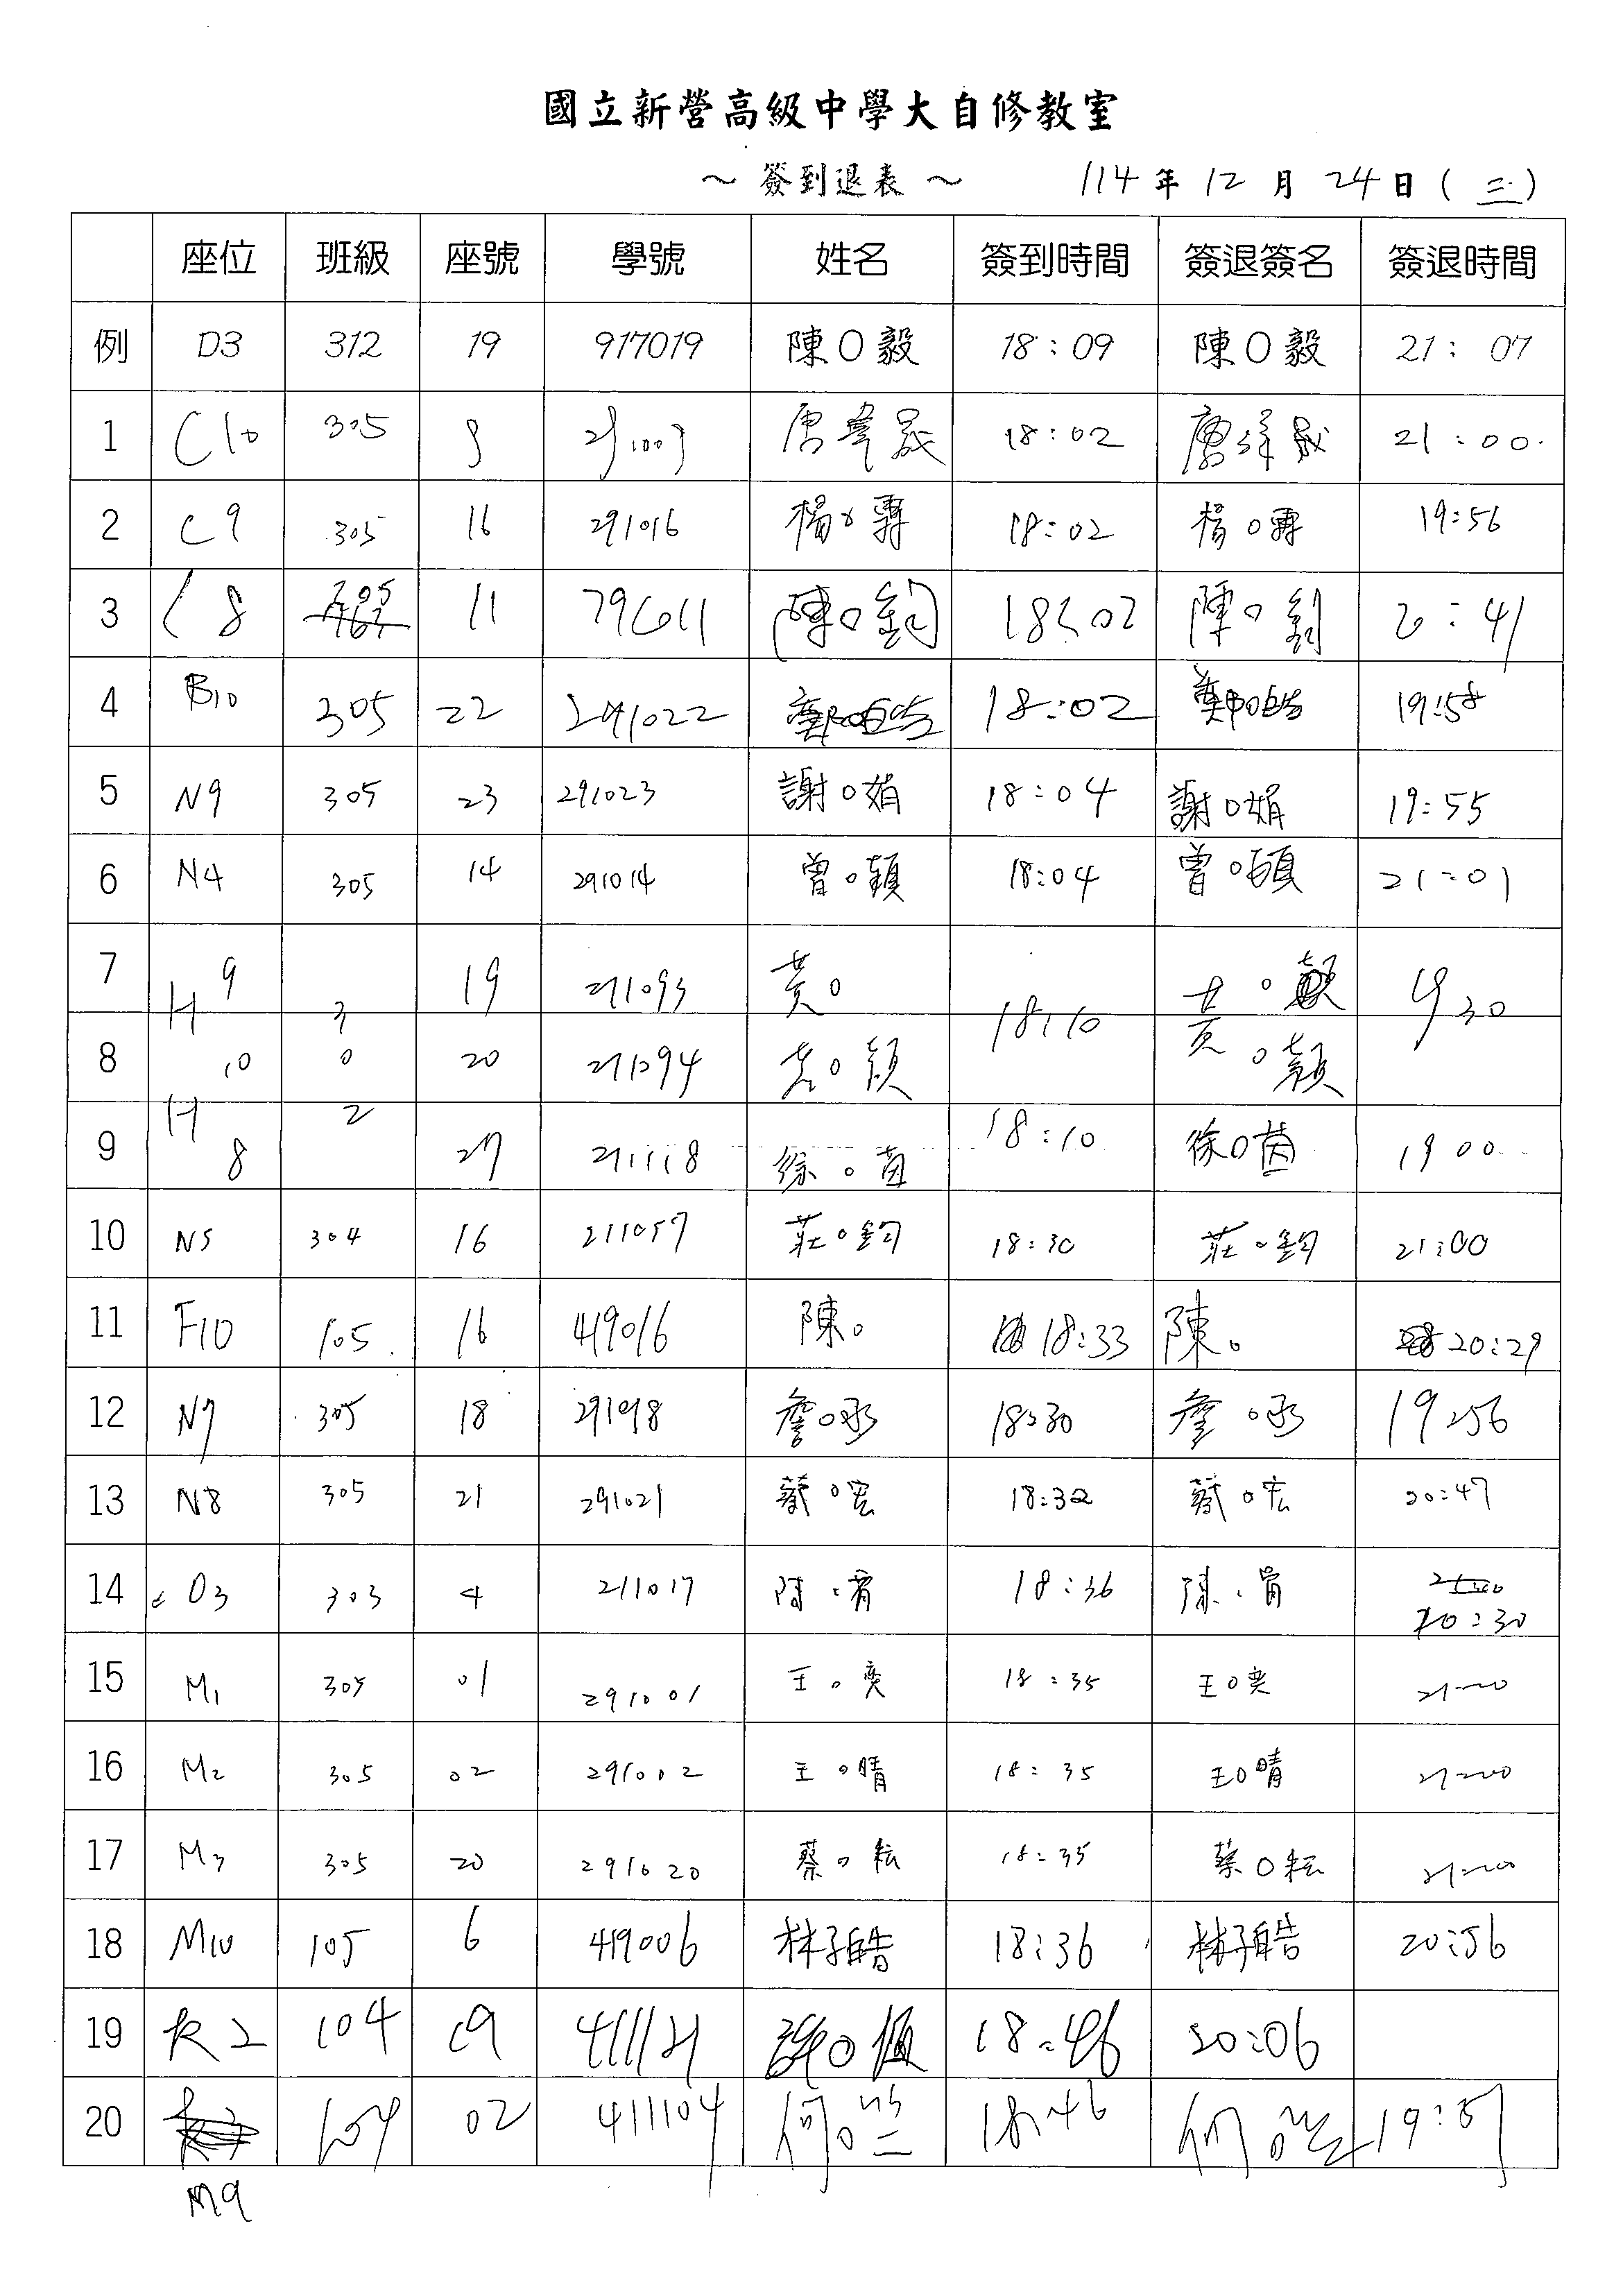 國立新營高級中學大自修教室
～ 簽到退表 ～ 114年12月24日(三)
座位 班級 座號 學號 姓名 簽到時間 簽退簽名 簽退時間
例 D3 312 19 917019 陳O毅 18:09 陳O毅 21:07
1 C10 305 18:02 21:00
2 C9 305 16 291016 楊O霽 18:02 楊O霽 19:56
3 8 11 陳O鈞 18:02 陳O鈞 :41
4 B10 305 22 291022 18:02 鄭O皓 19:58
5 N9 305 23 291023 謝O娟 18:04 謝O娟 19:55
6 N4 305 14 291014 曾O穎 18:04 曾O穎 21:01
7 H9 3 19 211093 黃O 18:10 黃O 1930
8 H10 0 20 211094 黃O穎 黃O穎
9 8 2 27 211118 徐O茵 18:10 徐O茵 1900
10 N5 304 16 211057 莊O鈞 18:30 莊O鈞 21:00
11 F10 105 16 419016 陳O 18:33 陳O 20:29
12 N7 305 18 詹O承 18:30 詹O承 19:56
13 N8 305 21 291021 蔡O宏 18:32 蔡O宏 20:47
14 O3 303 4 211017 陳O宥 18:36 陳O 20:30
15 M1 305 01 291001 王O奕 18:35 王O奕 21:00
16 M2 305 02 291002 王O晴 18:35 王O晴 21:00
17 M3 305 20 291020 蔡O耘 18:35 蔡O耘 21:00
18 M10 105 6 419006 林子皓 18:36 林子皓 20:56
19 K2 104 19 411121 許O恆 18:46 20:06
20 104 02 411104 何O 18:46 何O 19:57
M9